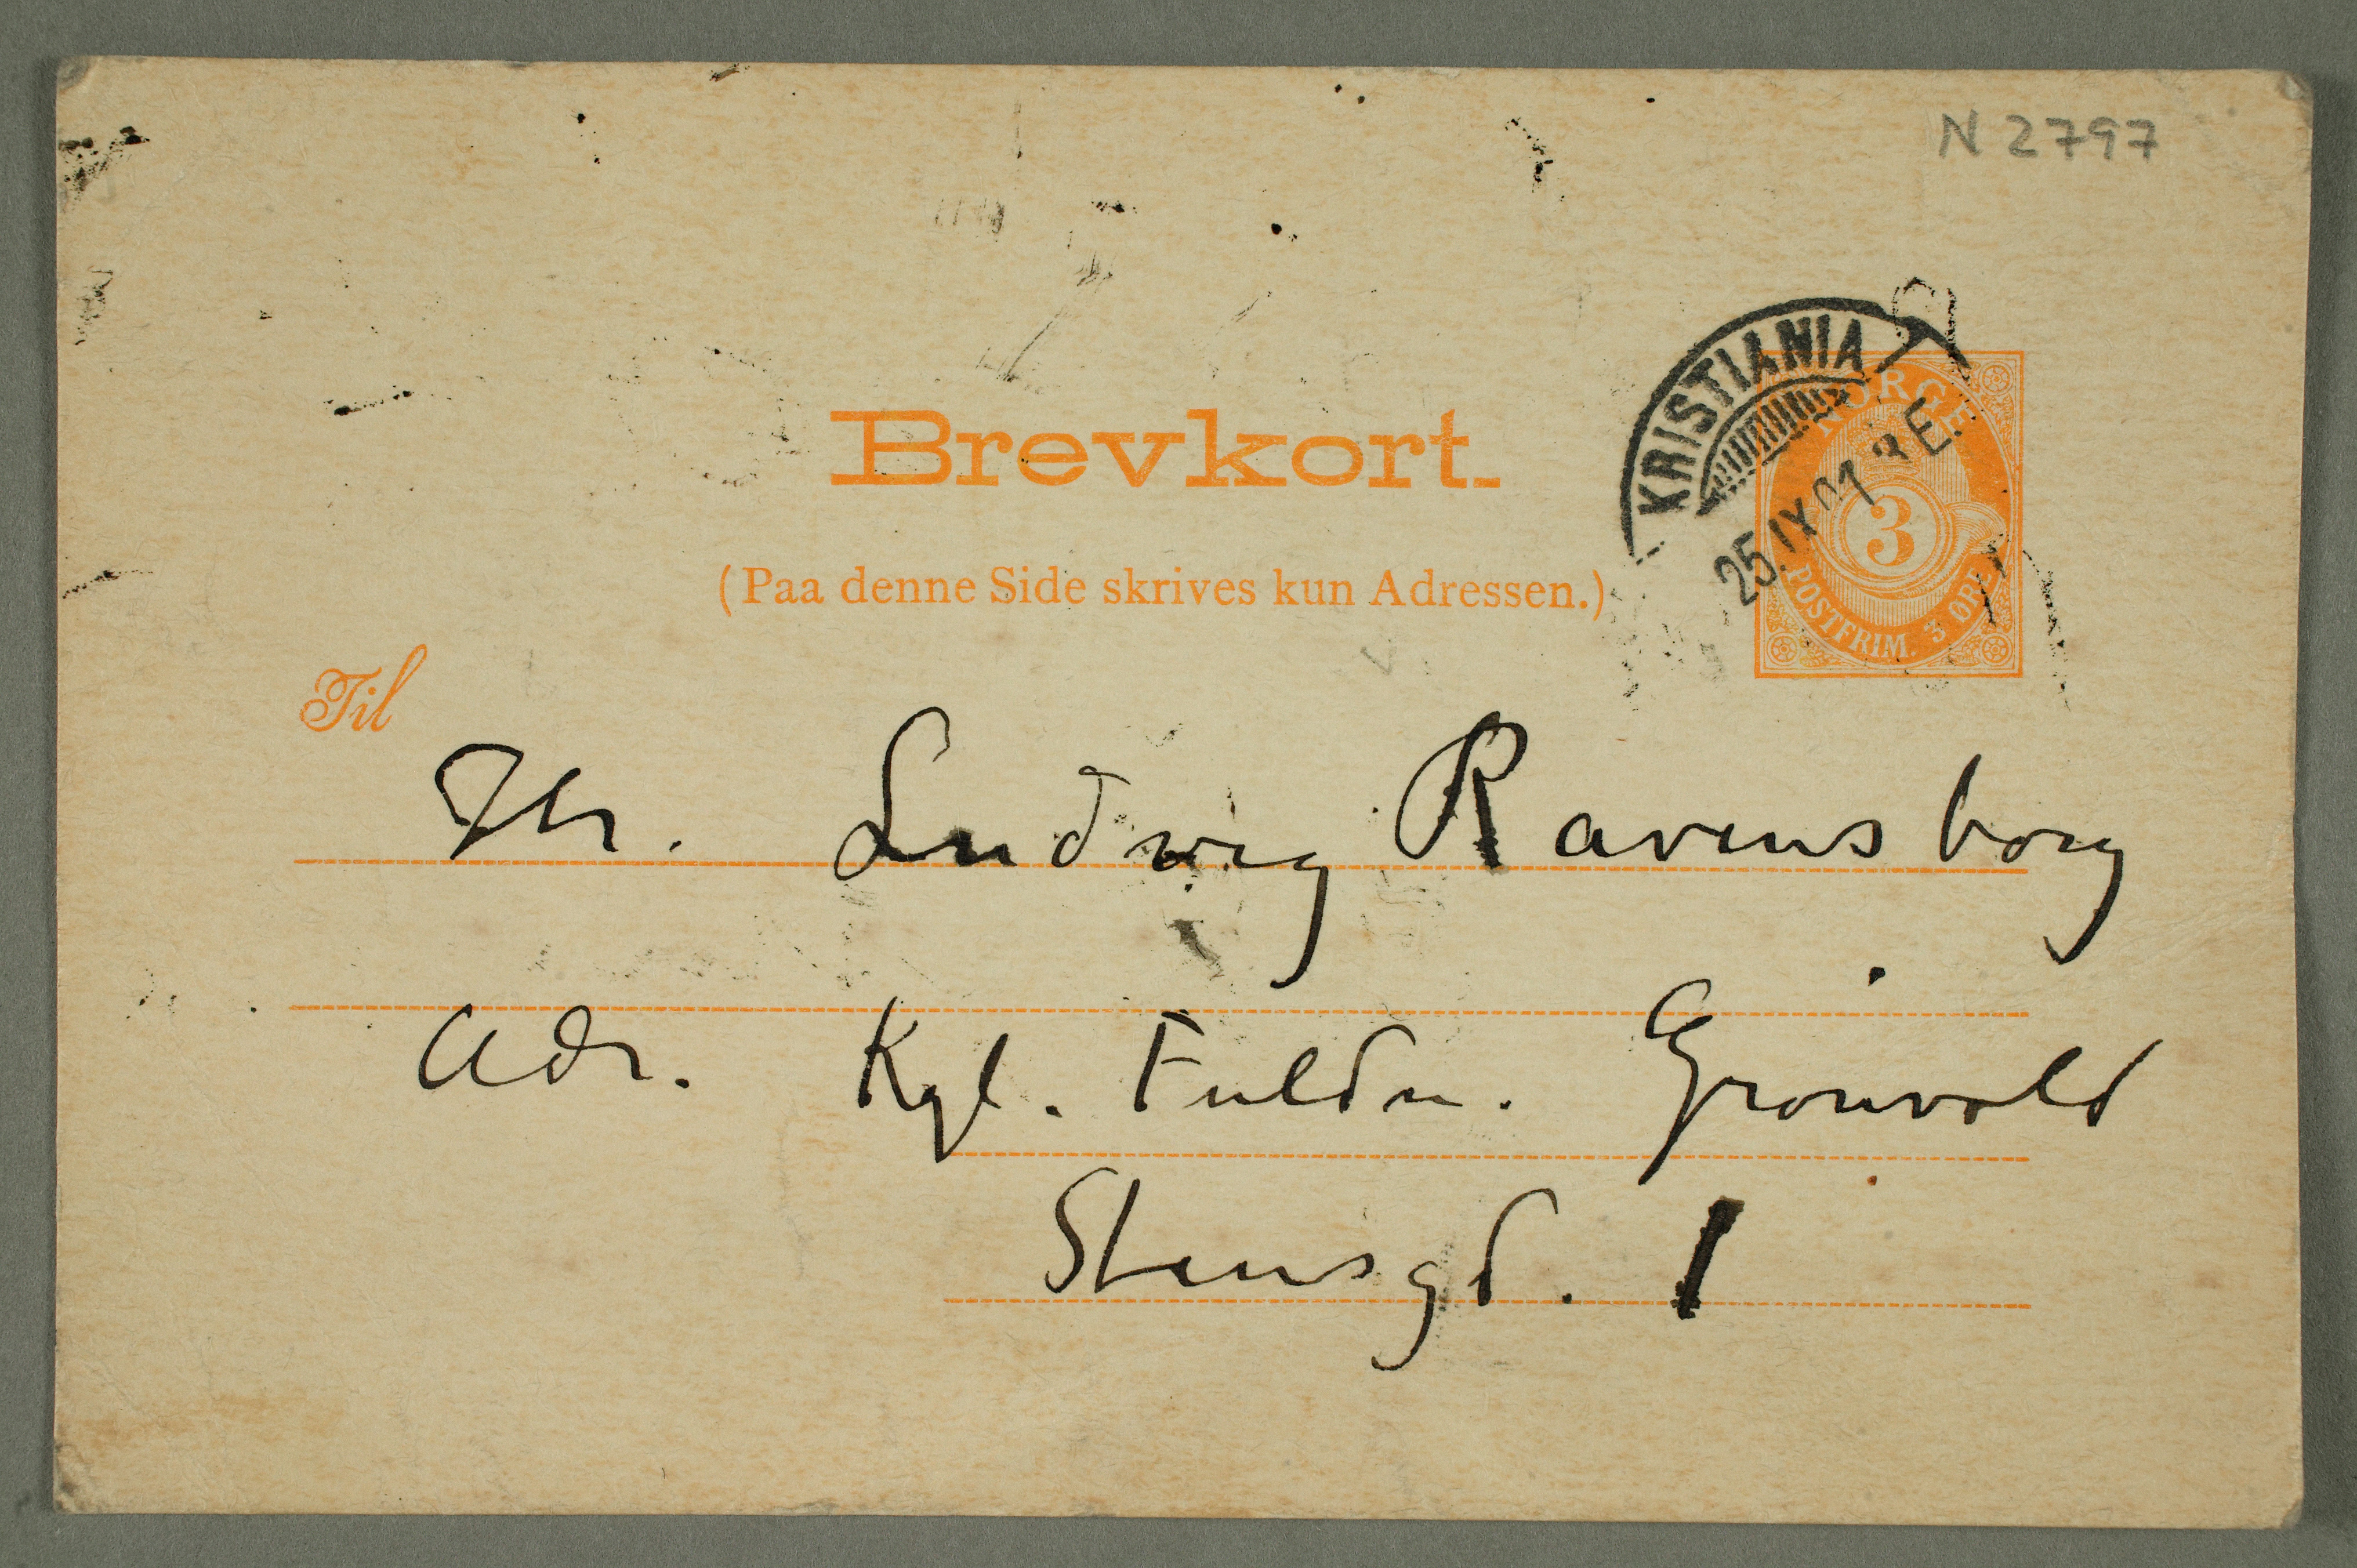 N 2797
Brevkort.
(Paa denne Side skrives kun Adressen.)
KRISTIANIA
25.IX 01 3 E.
NORGE
3
POSTFRIM. 3 ØRE
Til
Hr. Ludvig Ravensborg
Adr. Kgl. Fuldm. Grönvold
Stensgd. 1